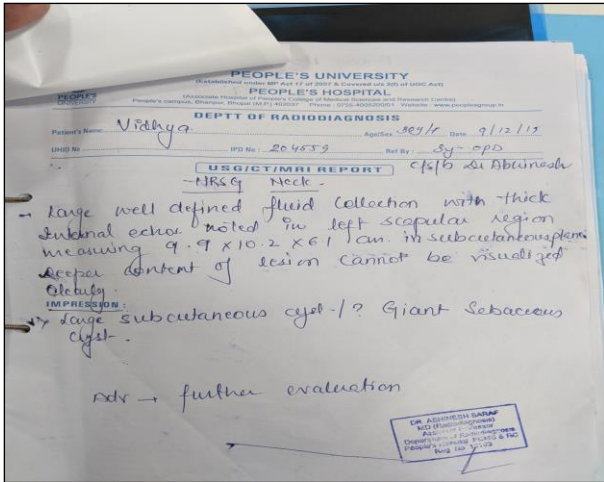 PEOPLE'S UNIVERSITY
(Established under MP Act 17 of 2007 & Covered u/s 2(f) of UGC Act)
PEOPLE'S HOSPITAL
(Associate Hospital of People's College of Medical Sciences and Research Centre)
People's campus, Bhanpur, Bhopal (M.P.) 462037 Phone : 0755-4005200/01 Website : www.peoplesgroup.in
PEOPLE'S
UNIVERSITY
DEPTT OF RADIODIAGNOSIS
Patient's Name Vidhya Age/Sex Date 9/12/19
UHID No IPD No : 204559 Ref By : Sy-OPD
USG/CT/MRI REPORT c/s/b Dr Abhinesh
Neck.
→ Large well defined fluid collection with thick
internal echos noted in left scapular region
measuring 9.9 x 10.2 x 61 in subcutaneous
deeper content of lesion cannot be visualized
clearly.
IMPRESSION :
Large subcutaneous cyst /? Giant Sebaceous
cyst.
Adv → further evaluation
DR. ABHINESH SARAF
MD (Radiodiagnosis)
Assistant Professor
Department of Radiodiagnosis